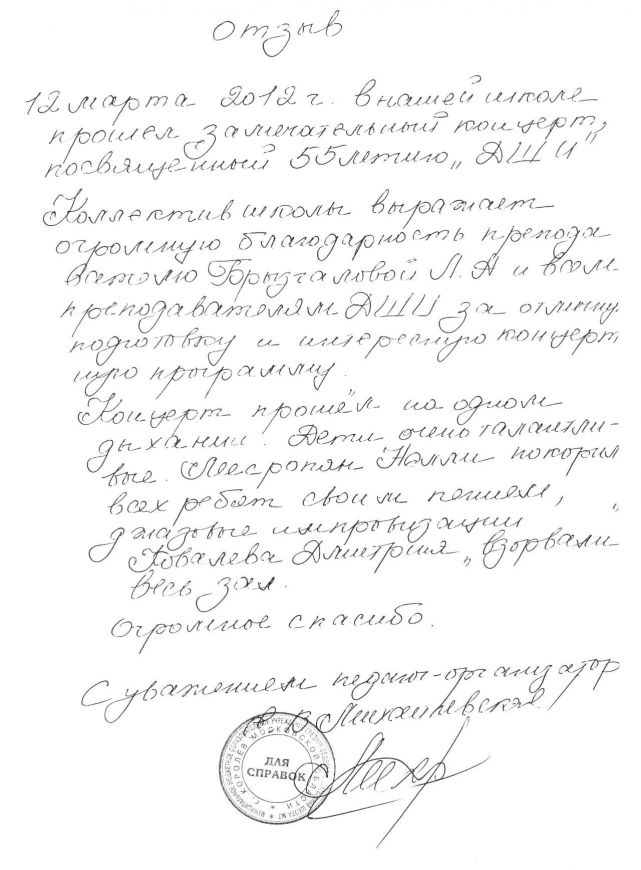 Отзыв
12 марта 2012 г. в нашей школе
прошел замечательный концерт,
посвященный 55летию „ДШИ"
Коллектив школы выражает
огромную благодарность препода
вателю Брызгаловой Л.А и всем
преподавателям ДШИ за отличну.
подготовку и интересную концерт
ную программу.
Концерт прошёл на одном
дыхании. Дети очень талантли-
вые. Месропян Нэлли покорил
всех ребят своим пением,
джазовые импровизации
Ковалева Дмитрия „взорвали"
весь зал.
Огромное спасибо.
С уважением педагог-организатор
В Михайлевская
ДЛЯ
СПРАВОК
Г. КОРОЛЁВ МОСКОВСКОЙ ОБЛАСТИ